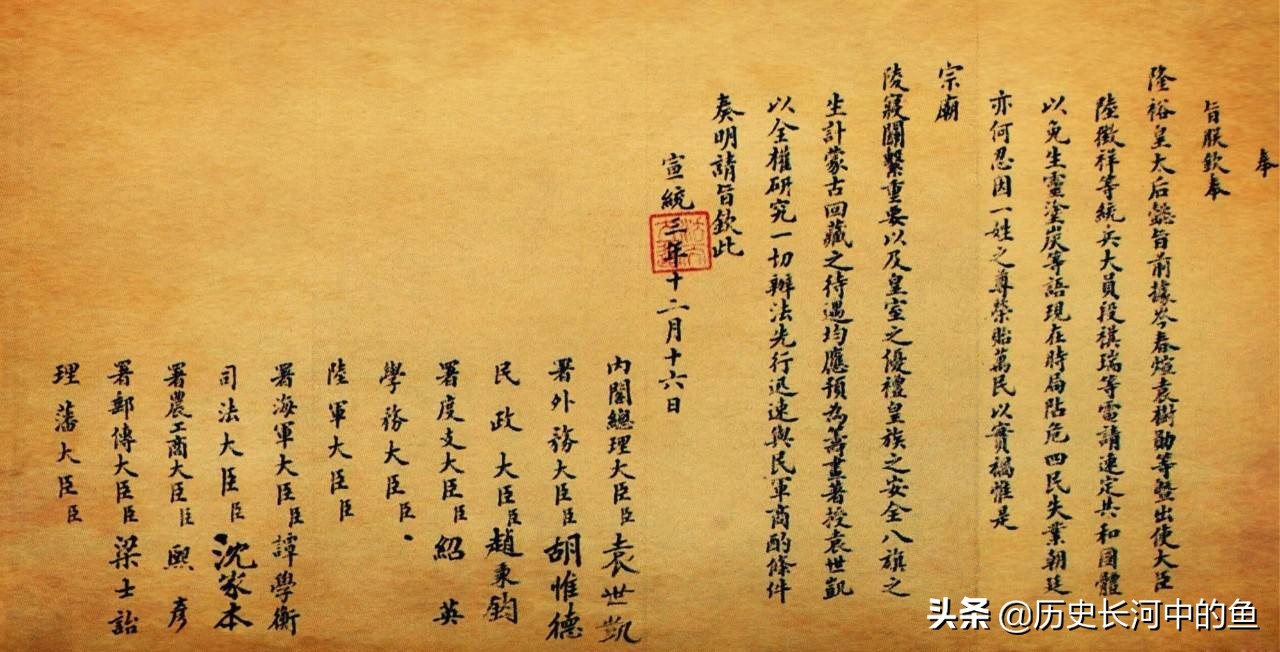 奉
旨朕欽奉
隆裕皇太后懿旨前據岑春煊袁樹勛等暨出使大臣
陸徵祥等統兵大員段祺瑞等電請速定共和國體
以免生靈塗炭等語現在時局阽危四民失業朝廷
亦何忍因一姓之尊榮貽萬民以實禍惟是
宗廟
陵寢關繫重要以及皇室之優禮皇族之安全八旗之
生計蒙古回藏之待遇均應預為籌畫著授袁世凱
以全權研究一切辦法先行迅速與民軍商酌條件
奏明請旨欽此
宣統三年十二月十六日
內閣總理大臣臣袁世凱
署外務大臣臣胡惟德
民政大臣臣趙秉鈞
署度支大臣臣紹英
學務大臣臣
陸軍大臣臣
署海軍大臣臣譚學衡
司法大臣臣沈家本
署農工商大臣臣熙彥
署郵傳大臣臣梁士詒
理藩大臣臣
头条 @历史长河中的鱼